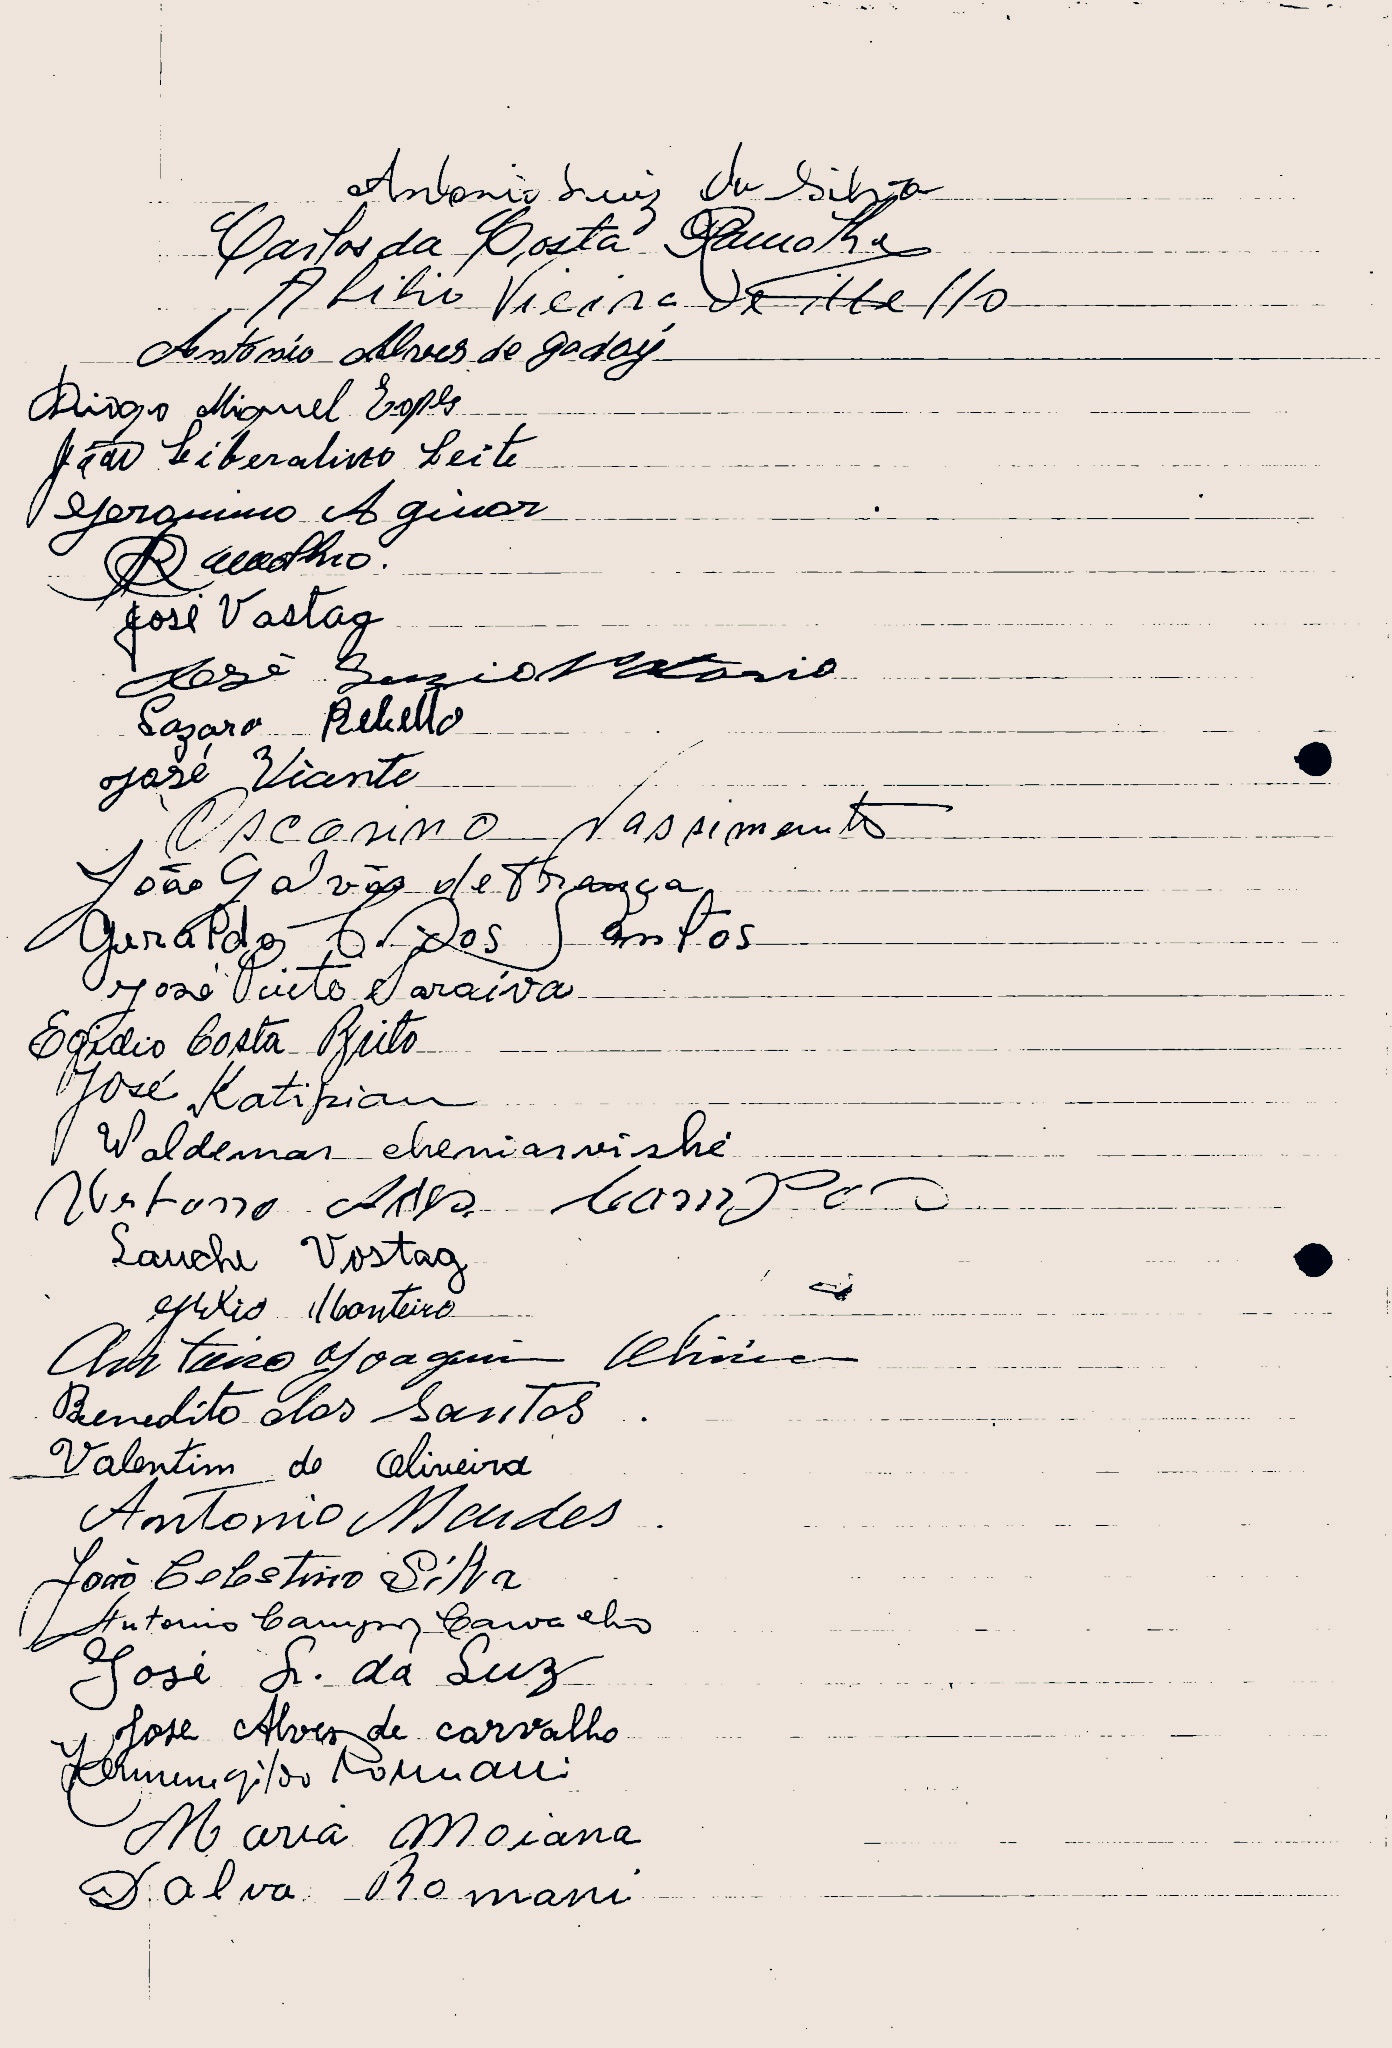 Antonio Luiz da Silva
Carlos da Costa Ramalho
Abilio Vieira de Mello
Antonio Alves de Godoy
Diogo Miguel Lopes
João Liberalino Leite
Jeronimo Aginor
Ramalho.
José Vastag
José
Lazaro Rebello
José Viante
Oscarino Nassimento
João Galvão de França
Geraldo B. Dos Santos
José Pinto Saraiva
Egidio Costa Brito
José Katipian
Waldemar
Campos
Vostag
Monteiro
Joaquim
Benedito dos Santos
Valentim de Oliveira
Antonio Mendes
João Celestino Silva
Antonio Campos Carvalho
José da Luz
José Alves de carvalho
Hermenegildo Romani
Maria Moiana
Dalva Romani